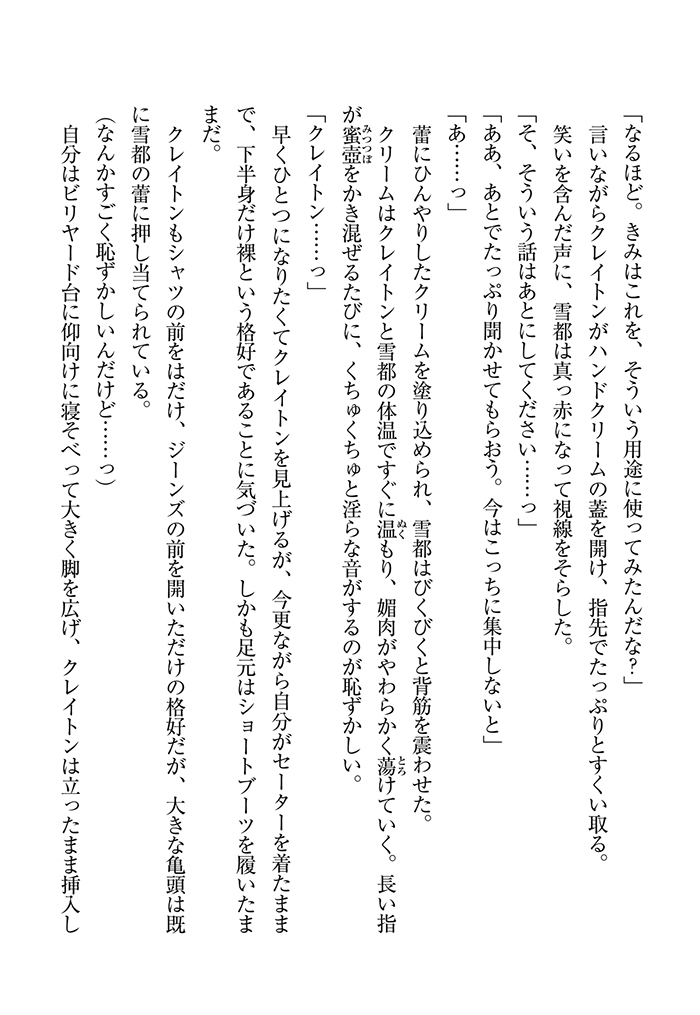 「なるほど。きみはこれを、そういう用途に使ってみたんだな?」
言いながらクレイトンがハンドクリームの蓋を開け、指先でたっぷりとすくい取る。
笑いを含んだ声に、雪都は真っ赤になって視線をそらした。
「そ、そういう話はあとにしてください……っ」
「ああ、あとでたっぷり聞かせてもらおう。今はこっちに集中しないと」
「あ……っ」
蕾にひんやりしたクリームを塗り込められ、雪都はびくびくと背筋を震わせた。
クリームはクレイトンと雪都の体温ですぐに温もり、媚肉がやわらかく蕩けていく。長い指
が蜜壺をかき混ぜるたびに、くちゅくちゅと淫らな音がするのが恥ずかしい。
「クレイトン……っ」
早くひとつになりたくてクレイトンを見上げるが、今更ながら自分がセーターを着たまま
で、下半身だけ裸という格好であることに気づいた。しかも足元はショートブーツを履いたま
まだ。
クレイトンもシャツの前をはだけ、ジーンズの前を開いただけの格好だが、大きな亀頭は既
に雪都の蕾に押し当てられている。
(なんかすごく恥ずかしいんだけど……っ)
自分はビリヤード台に仰向けに寝そべって大きく脚を広げ、クレイトンは立ったまま挿入し